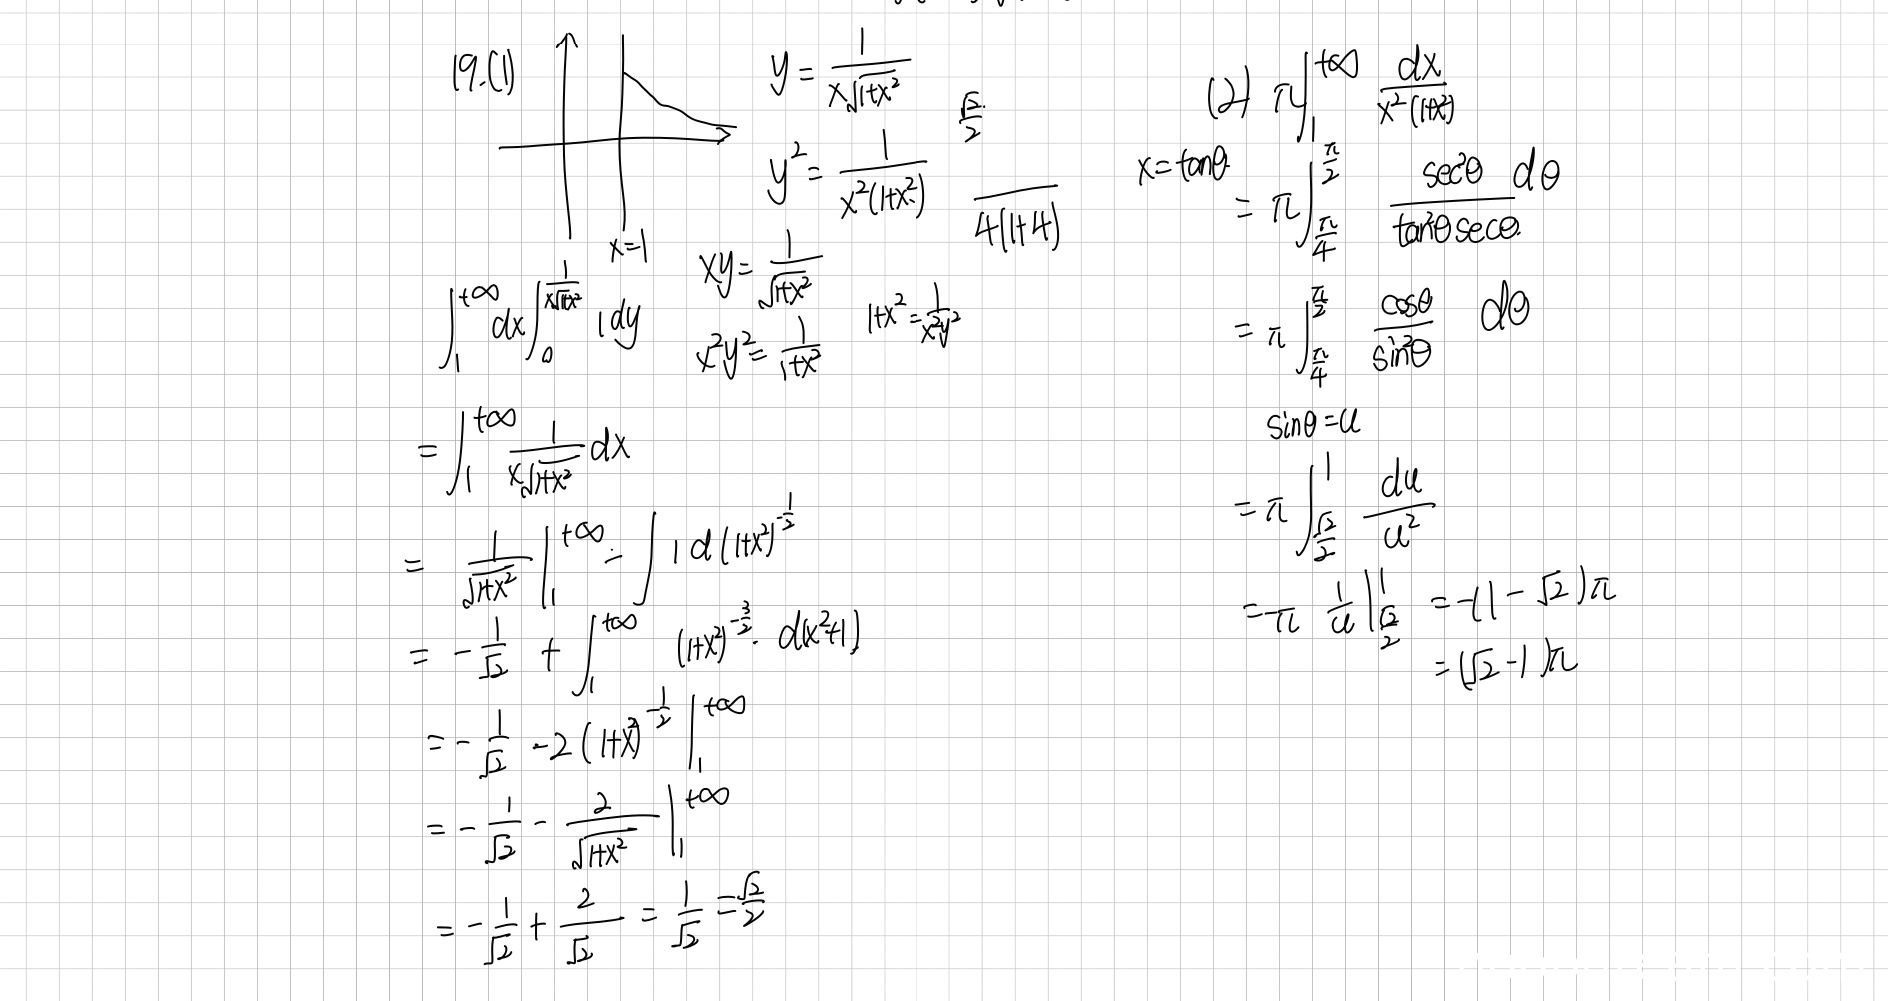 19.(1)
y = 1/(x√(1+x²))
√2/2
y² = 1/(x²(1+x²))
4(1+4)
x=1
xy = 1/√(1+x²)
x²y² = 1/(1+x²)
1+x² = 1/(x²y²)
∫₁^{+∞} dx ∫₀^{1/(x√(1+x²))} 1 dy
= ∫₁^{+∞} 1/(x√(1+x²)) dx
= 1/√(1+x²) |₁^{+∞} - ∫ 1 d(1+x²)^{-1/2}
= -1/√2 + ∫₁^{+∞} (1+x²)^{-3/2} · d(x²+1)
= -1/√2 - 2(1+x²)^{-1/2} |₁^{+∞}
= -1/√2 - 2/√(1+x²) |₁^{+∞}
= -1/√2 + 2/√2 = 1/√2 = √2/2
(2) π ∫₁^{+∞} dx/(x²(1+x²))
x=tanθ
= π ∫_{π/4}^{π/2} sec²θ/(tan²θ secθ) dθ
= π ∫_{π/4}^{π/2} cosθ/sin²θ dθ
sinθ=u
= π ∫_{√2/2}^{1} du/u²
= -π 1/u |_{√2/2}^{1} = -(1-√2)π
= (√2-1)π